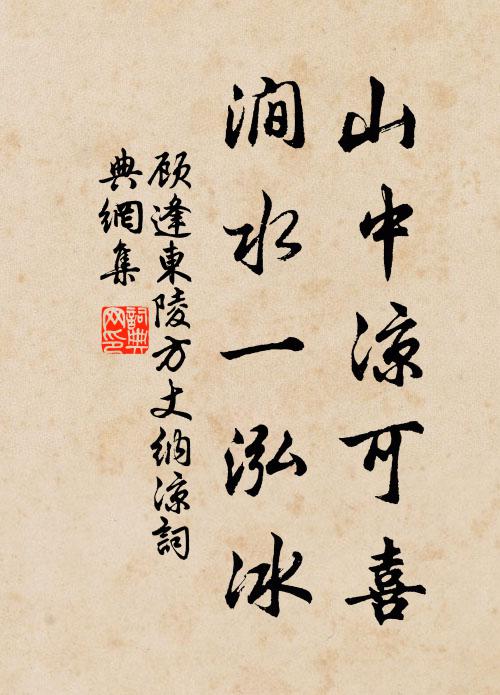 山中凉可喜
涧水一泓冰
顾逢東陵方丈纳凉詞
典網集
詞典
网印